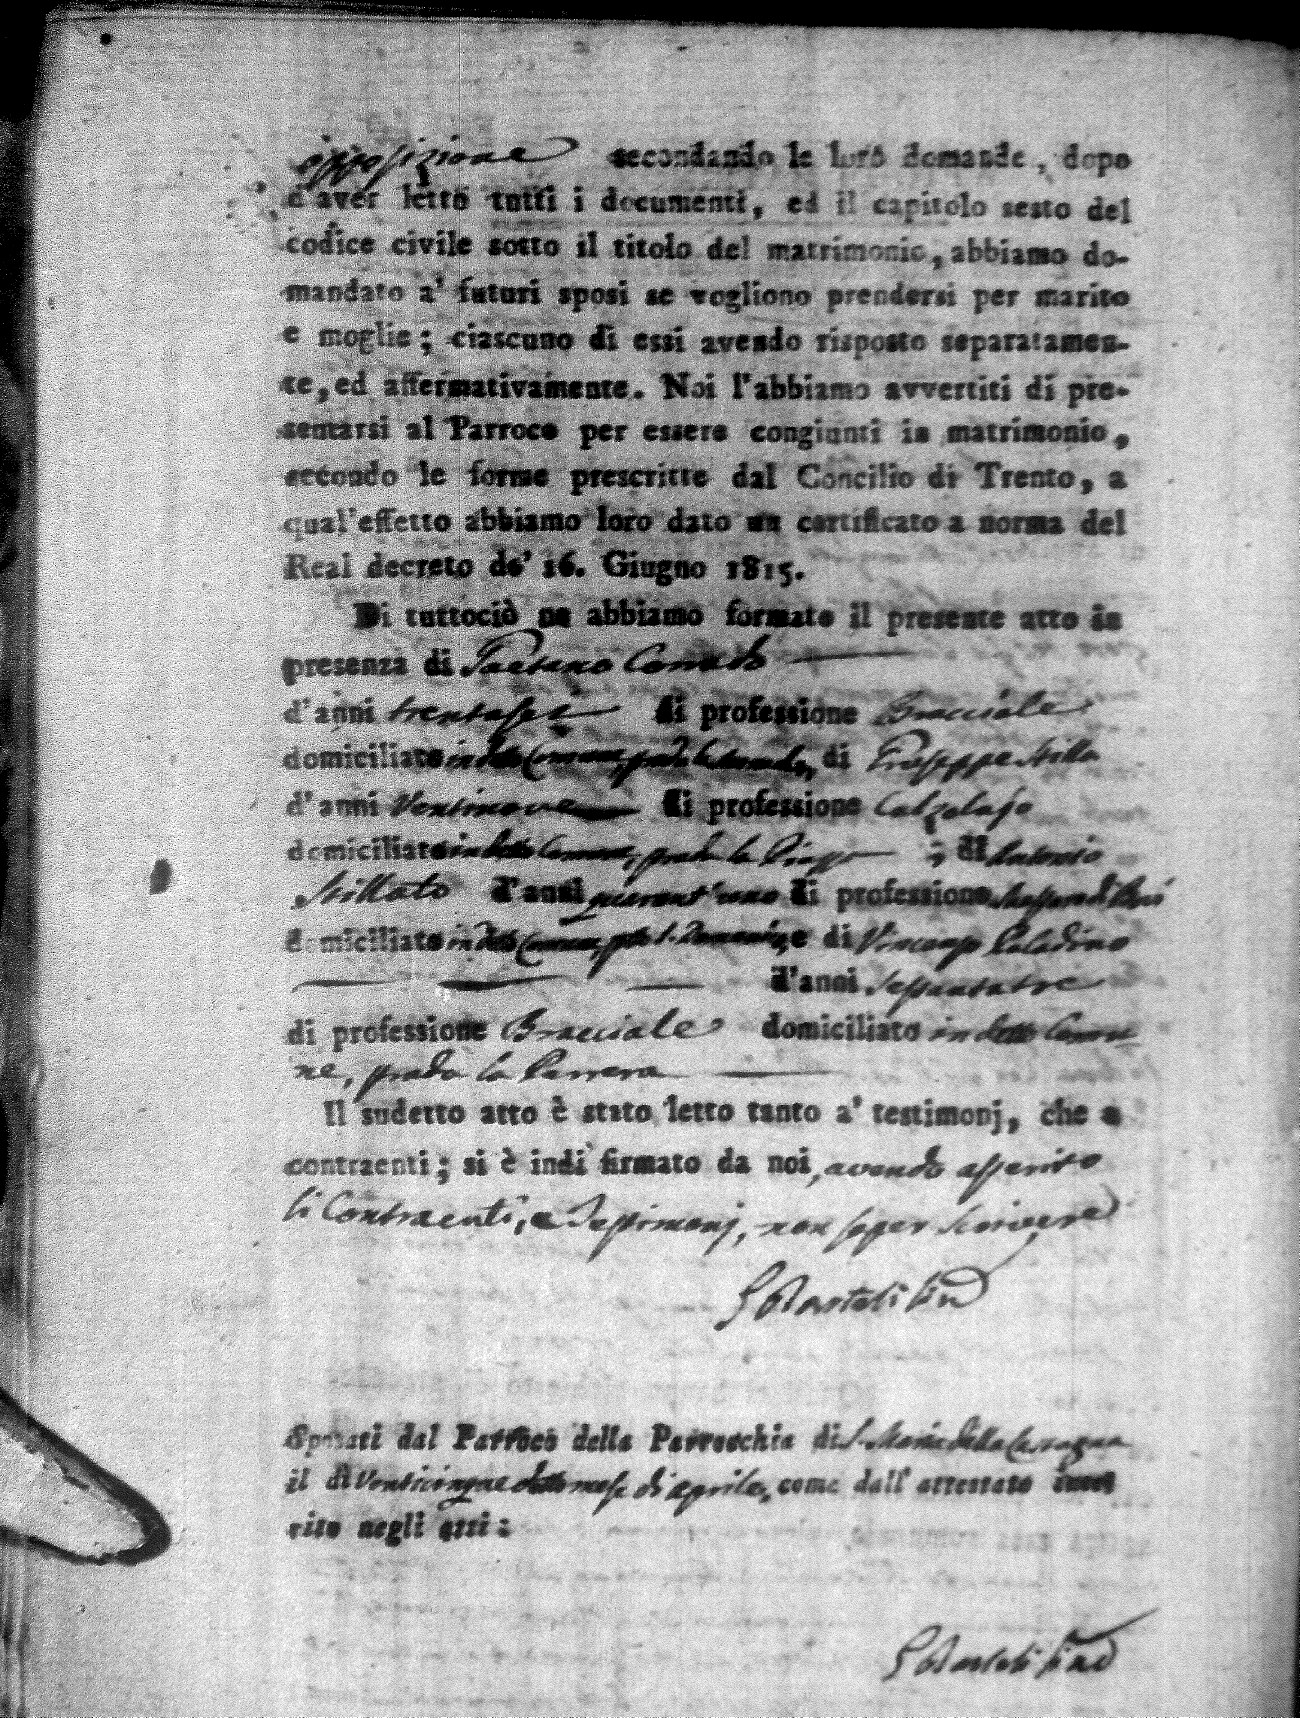 opposizione secondando le loro domande, dopo
d'aver letto tutti i documenti, ed il capitolo sesto del
codice civile sotto il titolo del matrimonio, abbiamo do-
mandato a' futuri sposi se vogliono prendersi per marito
e moglie; ciascuno di essi avendo risposto separatamen-
te, ed affermativamente. Noi l'abbiamo avvertiti di pre-
sentarsi al Parroco per essere congiunti in matrimonio,
secondo le forme prescritte dal Concilio di Trento, a
qual'effetto abbiamo loro dato un certificato a norma del
Real decreto de' 16. Giugno 1815.
Di tuttociò ne abbiamo formato il presente atto in
presenza di Gaetano Corrado
d'anni trentasei di professione Bracciale
domiciliato in detto Comune, di Giuseppe Stilla
d'anni Ventinove di professione Calzolajo
domiciliato in detto Comune, strada la Piazza ; di Antonio
Stillato d'anni quarant'uno di professione
domiciliato in detto Comune, e di Vincenzo Paladino
d'anni Sessantatre
di professione Bracciale domiciliato in detto Comu-
ne, strada la
Il sudetto atto è stato letto tanto a' testimonj, che a
contraenti; si è indi firmato da noi, avendo asserito
li Contraenti, e Testimonj, non saper scrivere
Sposati dal Parroco della Parrocchia di S. Maria della
il di Venticinque detto mese di Aprile, come dall' attestato inse
rito negli atti: